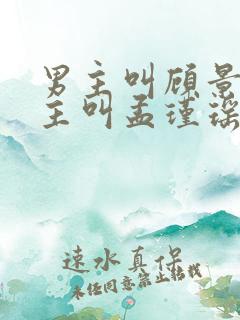 男主叫顾景
主叫孟瑾瑶
速水真保
未经同意禁止转载